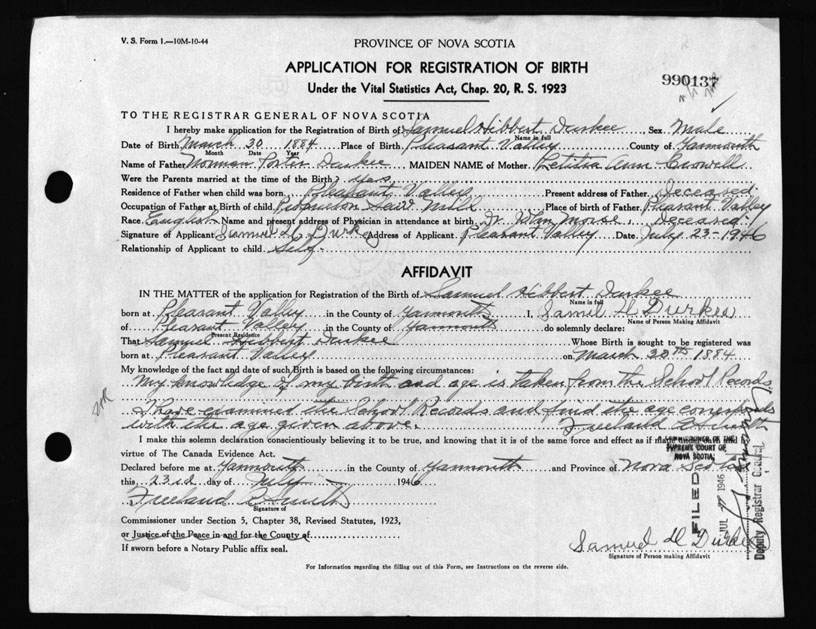 V. S. Form 1.—10M-10-44
PROVINCE OF NOVA SCOTIA
APPLICATION FOR REGISTRATION OF BIRTH
990137
Under the Vital Statistics Act, Chap. 20, R. S. 1923
TO THE REGISTRAR GENERAL OF NOVA SCOTIA
I hereby make application for the Registration of Birth of Samuel Hibbert Durkee Sex Male
Name in full
Date of Birth March 20 1884 Place of Birth Pleasant Valley County of Yarmouth
Month Date Year
Name of Father Norman Porter Durkee MAIDEN NAME of Mother Letitia Ann Crowell
Were the Parents married at the time of the Birth? yes
Residence of Father when child was born Pleasant Valley Present address of Father deceased
Occupation of Father at Birth of child Saw Mill Place of Birth of Father Pleasant Valley
Race English Name and present address of Physician in attendance at birth Dr. Morse Deceased
Signature of Applicant Samuel H Durkee Address of Applicant Pleasant Valley Date July 23-1946
Relationship of Applicant to child Self
AFFIDAVIT
IN THE MATTER of the application for Registration of the Birth of Samuel Hibbert Durkee
Name in full
born at Pleasant Valley in the County of Yarmouth I, Samel H Durkee
Name of Person Making Affidavit
of Pleasant Valley in the County of Yarmouth do solemnly declare:
Present Residence
That Samuel Hibbert Durkee Whose Birth is sought to be registered was
born at Pleasant Valley on March 20th 1884
My knowledge of the fact and date of such Birth is based on the following circumstances:
My knowledge of my birth and age is taken from the School Records
I have examined the School Records and find the age corresponds
with the age given above. Freeland Smith
I make this solemn declaration conscientiously believing it to be true, and knowing that it is of the same force and effect as if made under oath and
COMMISSIONER OF THE
SUPREME COURT OF
NOVA SCOTIA
virtue of The Canada Evidence Act.
Declared before me at Yarmouth in the County of Yarmouth and Province of Nova Scotia
this 23rd day of July 1946
Freeland Smith
Signature of
Commissioner under Section 5, Chapter 38, Revised Statutes, 1923,
or Justice of the Peace in and for the County of
If sworn before a Notary Public affix seal.
Samuel H Durkee
Signature of Person making Affidavit
FILED
JUL 1946
Deputy Registrar General
For Information regarding the filling out of this Form, see Instructions on the reverse side.